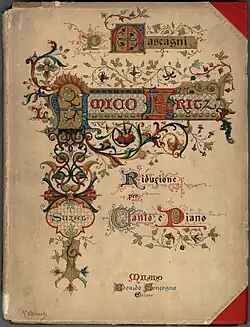 Mascagni
L'Amico Fritz
Suzel
Riduzione
per
Canto e Piano
Milano
Edoardo Sonzogno
Editore